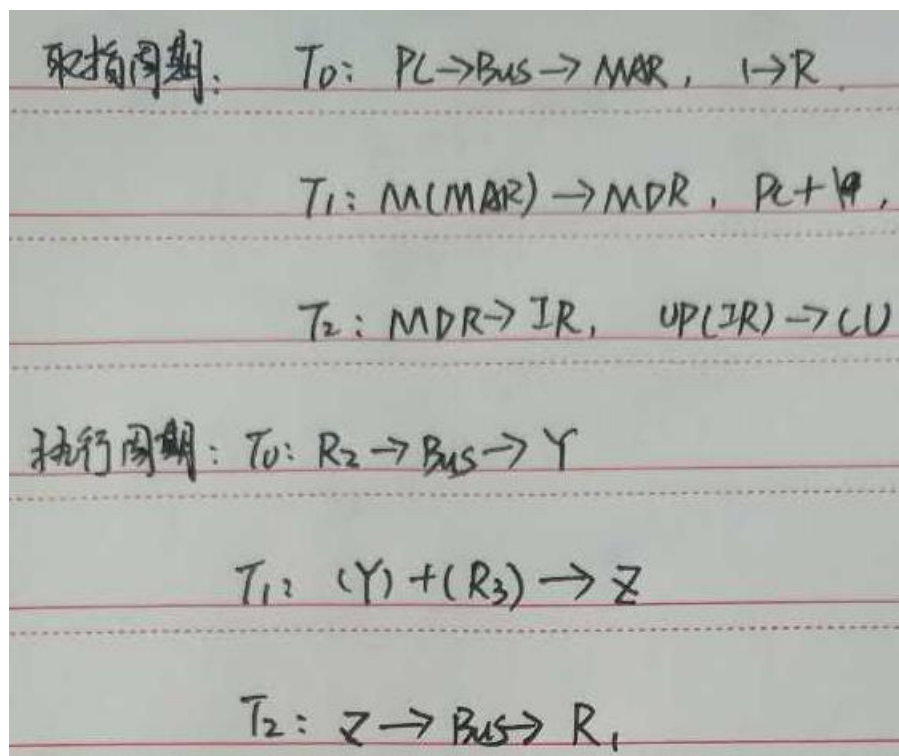 取指周期: T0: PC→Bus→MAR, 1→R.
T1: M(MAR)→MDR, PC+
T2: MDR→IR, OP(IR)→CU
执行周期: T0: R2→Bus→Y
T1: (Y)+(R3)→Z
T2: Z→Bus→R1